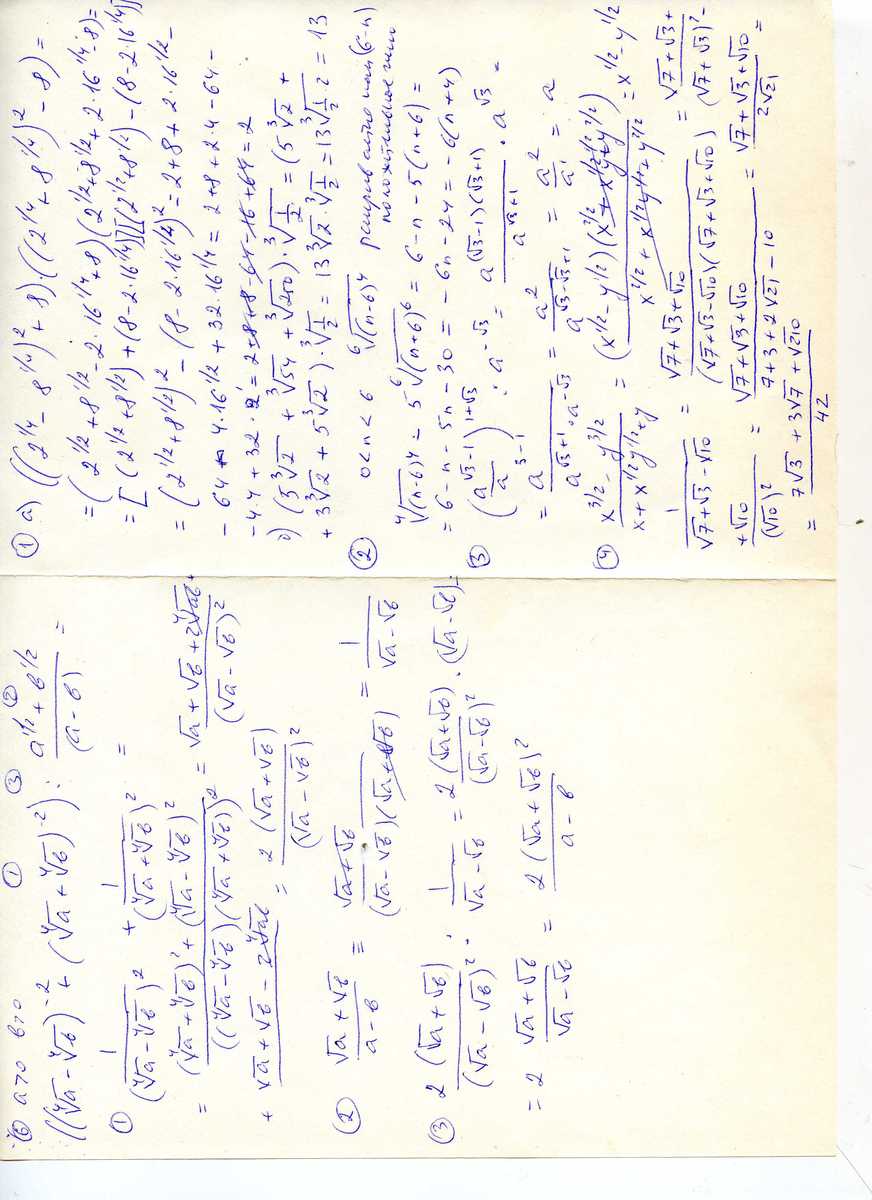 ① а) ((2^{1/4} - 8^{1/4})² + 8)·((2^{1/4} + 8^{1/4})² - 8) =
= (2^{1/2} + 8^{1/2} - 2·16^{1/4} + 8)(2^{1/2} + 8^{1/2} + 2·16^{1/4} - 8) =
= [(2^{1/2} + 8^{1/2}) + (8 - 2·16^{1/4})][(2^{1/2} + 8^{1/2}) - (8 - 2·16^{1/4})]
= (2^{1/2} + 8^{1/2})² - (8 - 2·16^{1/4})² = 2 + 8 + 2·16^{1/2} -
- 64 - 4·16^{1/2} + 32·16^{1/4} = 2 + 8 + 2·4 - 64 -
- 4·4 + 32·2 = 2 + 8 + 8 - 64 - 16 + 64 = 2
б) (5∛2 + ∛54 + ∛250)·∛(1/2) = (5∛2 +
+ 3∛2 + 5∛2)·∛(1/2) = 13∛2·∛(1/2) = 13∛(1/2·2) = 13
② 0 < n < 6 ⁶√(n-6)⁴
положительное
⁴√(n-6)⁴ - 5 ⁶√(n+6)⁶ = 6 - n - 5(n+6) =
= 6 - n - 5n - 30 = - 6n - 24 = - 6(n+4)
③ (a^{√3-1}/a^{3-1})^{1+√3} · a^{-√3} = a^{(√3-1)(√3+1)}/a^{√3+1} · a^{√3} =
= a/(a^{√3+1}·a^{-√3}) = a²/a^{√3-√3+1} = a²/a¹ = a
④ (x^{3/2} - y^{3/2})/(x + x^{1/2}y^{1/2} + y) = (x^{1/2} - y^{1/2})(x^{3/2} + x^{1/2}y^{1/2} + y^{1/2})/(x^{1/2} + x^{1/2}y^{1/2} + y^{1/2}) = x^{1/2} - y^{1/2}
1/(√7+√3-√10) = (√7+√3+√10)/((√7+√3-√10)(√7+√3+√10)) = (√7+√3+/(√7+√3)² -
+√10/(√10)² = (√7+√3+√10)/(7+3+2√21-10) = (√7+√3+√10)/(2√21) =
= (7√3 + 3√7 + √210)/42
⑥ a>0 b>0
① ③ ②
((⁴√a - ⁴√b)^{-2} + (⁴√a + ⁴√b)^{-2}) : (a^{1/2} + b^{1/2})/(a-b) =
① 1/(⁴√a - ⁴√b)² + 1/(⁴√a + ⁴√b)² =
= ((⁴√a + ⁴√b)² + (⁴√a - ⁴√b)²)/((⁴√a - ⁴√b)(⁴√a + ⁴√b))² = (√a + √b + 2⁴√ab +/(√a - √b)²
+ √a + √b - 2⁴√ab = 2(√a + √b)/(√a - √b)²
② (√a + √b)/(a - b) = (√a + √b)/((√a - √b)(√a + √b)) = 1/(√a - √b)
③ 2(√a + √b)/(√a - √b)² : 1/(√a - √b) = 2(√a + √b)/(√a - √b)² · (√a - √b) =
= 2 (√a + √b)/(√a - √b) = 2(√a + √b)²/(a - b)